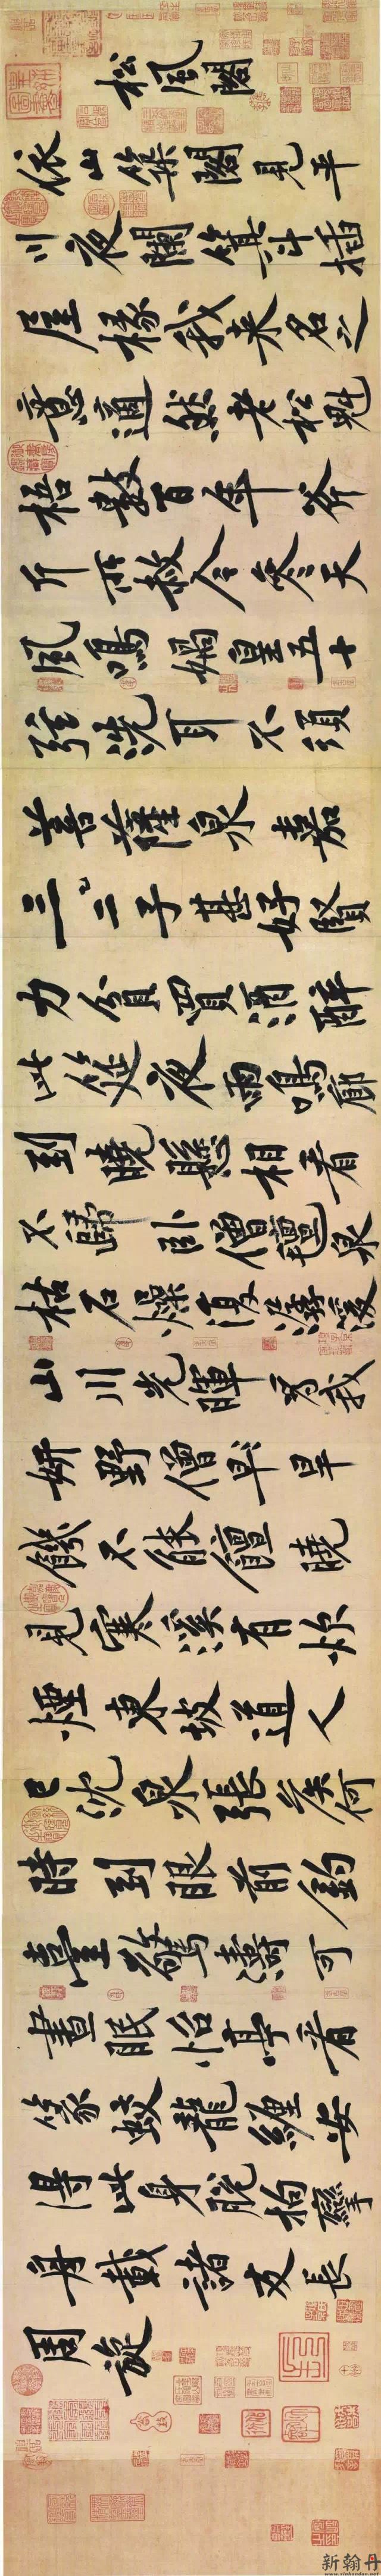 松風閣
依山築閣見平
川夜闌箕斗插
屋椽我來名之
意適然老松魁
梧數百年斧
斤所赦今參天
風鳴媧皇五十
弦洗耳不須
菩薩泉嘉
三二子甚好賢
力貧買酒醉
此筵夜雨鳴廊
到曉懸相看
不歸臥僧氈泉
枯石燥復潺湲
山川光暉為我
妍野僧早旱
饑不能饘曉
見寒溪有炊
煙東坡道人
已沈泉張侯何
時到眼前釣
臺驚濤可
晝眠怡亭看
篆蛟龍纏安
得此身脫拘攣
舟載諸友長
周旋
新翰丹